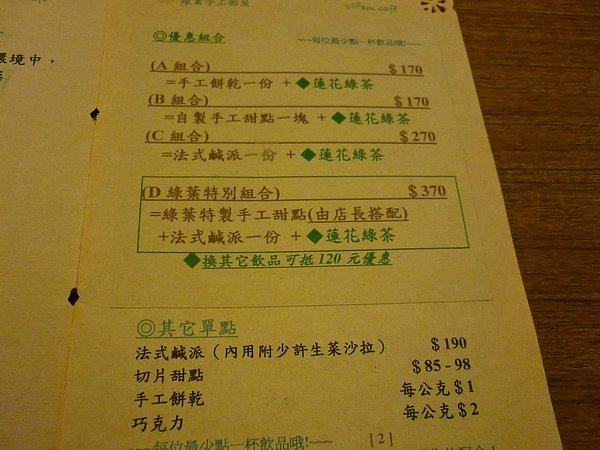 綠葉手工部屋
am café
環境中，
◎優惠組合
~~每位最少點一杯飲品哦!~~
(A 組合) $170
=手工餅乾一份 + ◆蓮花綠茶
(B 組合) $170
=自製手工甜點一塊 + ◆蓮花綠茶
(C 組合) $270
=法式鹹派一份 + ◆蓮花綠茶
(D 綠葉特別組合) $370
=綠葉特製手工甜點(由店長搭配)
+法式鹹派一份 + ◆蓮花綠茶
◆換其它飲品可抵 120 元優惠
◎其它單點
法式鹹派（內用附少許生菜沙拉） $190
切片甜點 $85 - 98
手工餅乾 每公克 $1
巧克力 每公克 $2
~~~每位最少點一杯飲品哦!~~~
[2]